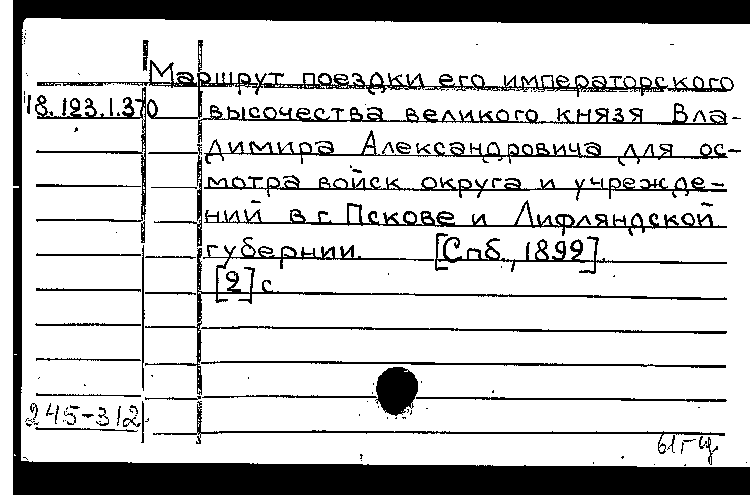 Маршрут поездки его императорского
18.123.1.370 высочества великого князя Вла-
димира Александровича для ос-
мотра войск округа и учрежде-
ний в г. Пскове и Лифляндской
губернии. [Спб., 1892].
[2] с.
245-312